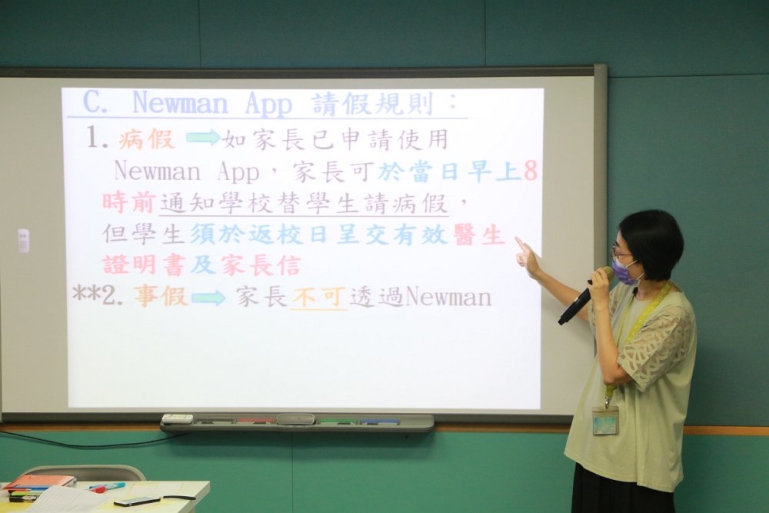 C. Newman App 請假規則：
1. 病假 ➡ 如家長已申請使用
Newman App，家長可於當日早上8
時前通知學校替學生請病假，
但學生須於返校日呈交有效醫生
證明書及家長信
**2. 事假 ➡ 家長不可透過Newman